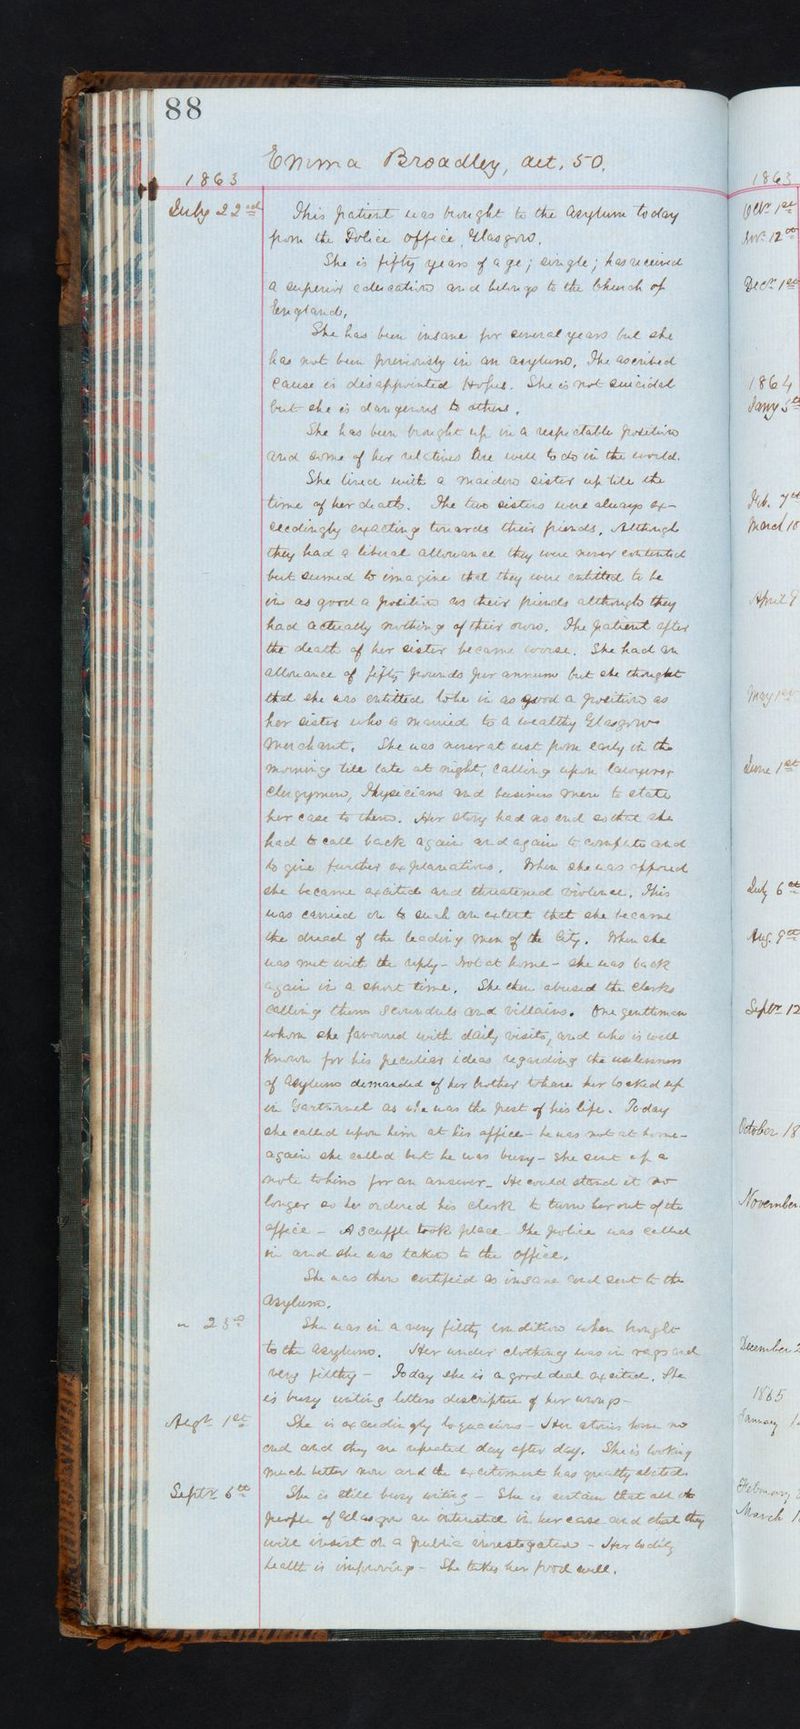 88
Emma Broadley, aet. 50.
1863
July 22nd This patient was brought to the Asylum today
from the Police office, Glasgow.
She is fifty years of age; single; has received
a superior education and belongs to the Church of
England.
She has been insane for several years but she
has not been previously in an asylum. The ascribed
cause is disappointed Hopes. She is not suicidal
but she is dangerous to others.
She has been brought up in a respectable position
and some of her relatives are well to do in the world.
She lived with a maiden sister up till the
time of her death. The two sisters were always ex-
ceedingly exacting towards their friends. Although
they had a liberal allowance they were never contented
but seemed to imagine that they were entitled to be
in as good a position as their friends although they
had actually nothing of their own. The patient after
the death of her sister became worse. She had an
allowance of fifty pounds per annum but she thought
that she was entitled to be in as good a position as
her sister who is married to a wealthy Glasgow
Merchant. She was never at rest from early in the
morning till late at night, calling upon lawyers,
Clergymen, Physicians and business men to state
her case to them. Her story had no end so that she
had to call back again and again to complete and
to give further explanations. When she was opposed
she became excited and threatened violence. This
was carried on to such an extent that she became
the dread of the leading men of the City. When she
was met with the reply - Not at home - she was back
again in a short time. She then abused the Clerks
calling them Scoundrels and villains. One gentleman
whom she favoured with daily visits, and who is well
known for his peculiar ideas regarding the uselessness
of Asylums demanded of her brother to have her locked up
in Gartnavel as she was the pest of his life. Today
she called upon him at his office - he was not at home -
again she called but he was busy - She sent up a
note to him for an answer - He could stand it no
longer so he ordered his clerk to turn her out of the
office - A scuffle took place - The police was called
in and she was taken to the office.
She was then certified as insane and sent to the
Asylum.
" 23rd She was in a very filthy condition when brought
to the Asylum. Her under clothing was in rags and
very filthy - Today she is a good deal excited. She
is busy writing letters descriptive of her wrongs -
Augt 1st She is exceedingly loquacious - Her stories have no
end and they are repeated day after day. She is looking
much better now and the excitement has greatly abated.
Septr 6th She is still busy writing - She is certain that all the
people of Glasgow are interested in her case and that they
will insist on a public investigation - Her bodily
health is improving - She takes her food well.
1863
Octr 1st
Novr 12th
Decr 1st
1864
Jany 5th
Feb. 7th
March 10
April 9
May 1st
June 1st
July 6th
Aug. 9th
Septr 12
October 18
November
December 2
1865
January 1
February
March 1